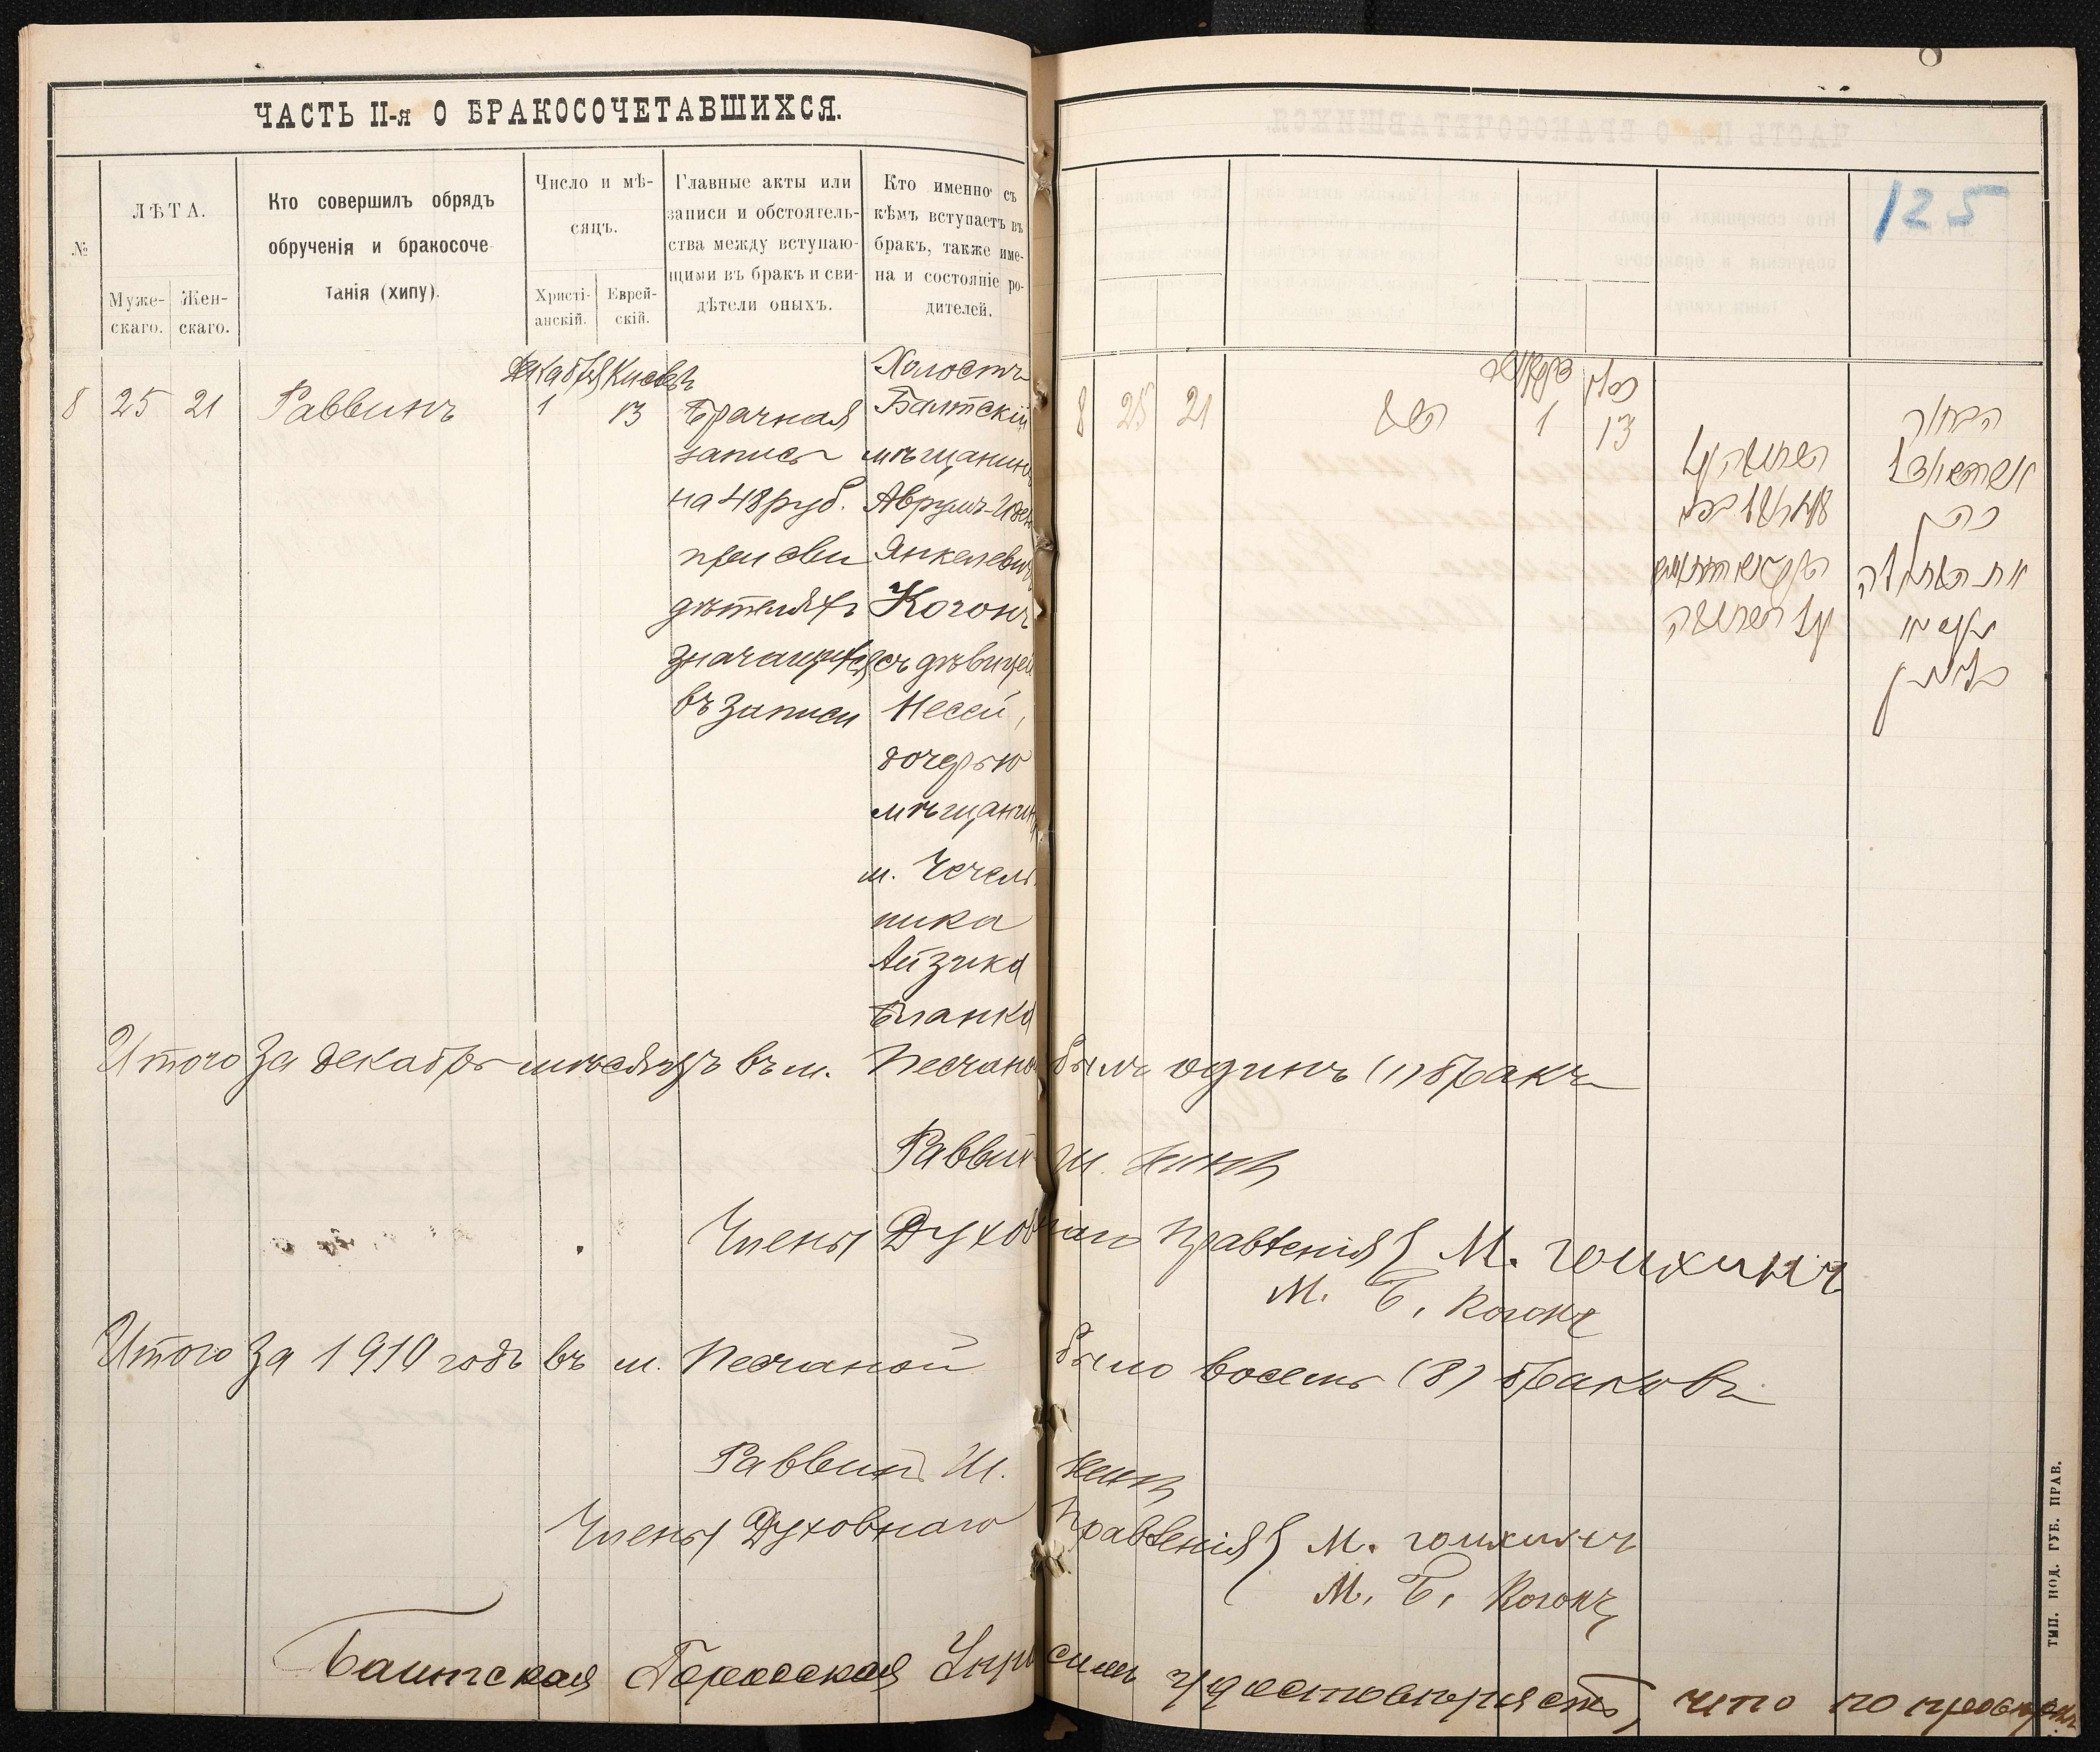 ЧАСТЬ II-я О БРАКОСОЧЕТАВШИХСЯ.
№
ЛѢТА.
Муже-
скаго.
Жен-
скаго.
Кто совершилъ обрядъ
обрученія и бракосоче-
танія (хипу).
Число и мѣ-
сяцъ.
Христі-
анскій.
Еврей-
скій.
Главные акты или
записи и обстоятель-
ства между вступаю-
щими въ бракъ и сви-
дѣтели оныхъ.
Кто именно съ
кѣмъ вступаетъ въ
бракъ, также име-
на и состояніе ро-
дителей.
8
25
21
Раввинъ
Декабря
1
Кислевъ
13
Брачная
запись
на 48 руб.
при сви
дѣтеляхъ
значащихся
въ записи
Холостъ
Балтскій
мѣщанинъ
Аврумъ-
Янкелевичъ
Когонъ
съ дѣвицей
Несей,
дочерью
мѣщанина
м. Чечель
ника
Айзика
Бланка
125
8
25
21
1
13
הבחור
כהן
Итого за декабрь мѣсяцъ въ м. Песчаной былъ одинъ (1) бракъ
Раввинъ Ш.
Члены Духовнаго Правленія М. Гоихманъ
М. Б. Когонъ
Итого за 1910 годъ въ м. Песчаной было восемь (8) браковъ
Раввинъ Ш.
Члены Духовнаго Правленія М. Гоихманъ
М. Б. Когонъ
Балтская Городская Управа симъ удостовѣряетъ, что по провѣркѣ
ТИП. ПОД. ГУБ. ПРАВ.